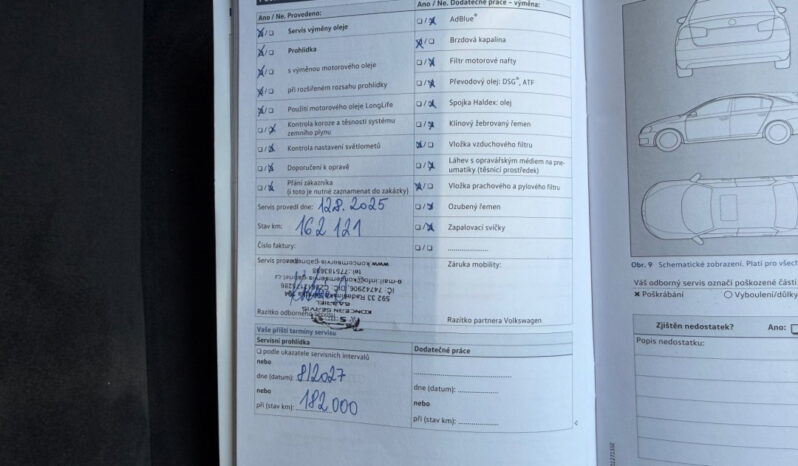 Ano / Ne. Provedeno:
Servis výměny oleje
Prohlídka
s výměnou motorového oleje
při rozšířeném rozsahu prohlídky
Použití motorového oleje LongLife
Kontrola koroze a těsnosti systému
zemního plynu
Kontrola nastavení světlometů
Doporučení k opravě
Přání zákazníka
(i toto je nutné zaznamenat do zakázky)
Servis provedl dne: 12.8. 2025
Stav km: 162 121
Číslo faktury:
Servis provedl
Razítko odborného
Ano / Ne. Dodatečné práce – výměna:
AdBlue®
Brzdová kapalina
Filtr motorové nafty
Převodový olej: DSG®, ATF
Spojka Haldex: olej
Klínový žebrovaný řemen
Vložka vzduchového filtru
Láhev s opravářským médiem na pne-
umatiky (těsnicí prostředek)
Vložka prachového a pylového filtru
Ozubený řemen
Zapalovací svíčky
Záruka mobility:
Razítko partnera Volkswagen
Vaše příští termíny servisu
Servisní prohlídka
podle ukazatele servisních intervalů
nebo
dne (datum): 8/2027
nebo
při (stav km): 182 000
Dodatečné práce
dne (datum):
nebo
při (stav km):
Obr. 9 Schematické zobrazení. Platí pro všec
Váš odborný servis označí poškozené části
Poškrábání Vyboulení/důlky
Zjištěn nedostatek? Ano:
Popis nedostatku: